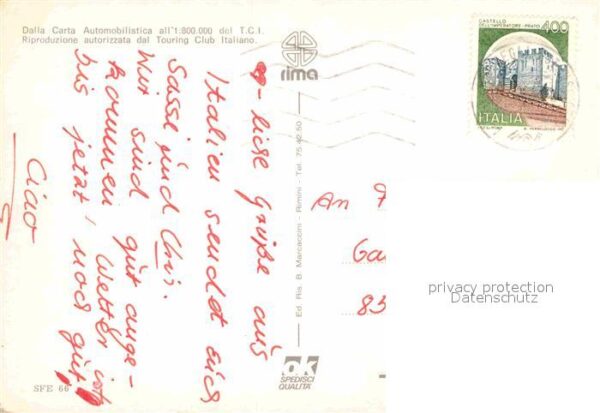 Dalla Carta Automobilistica all'1:800.000 del T.C.I.
Riproduzione autorizzata dal Touring Club Italiano.
rima
CASTELLO
DELL'IMPERATORE - PRATO
400
ITALIA
- liche Grüße aus
Italien sendet euch
Sassi und Chris.
Wir sind gut ange-
kommen. Wetter ist
bis jetzt noch gut.
Ciao
Ed. Ris. B. Marcaccini - Rimini - Tel. 75.42.50
An
83
privacy protection
Datenschutz
ok
SPEDISCI
QUALITÀ
SFE 66